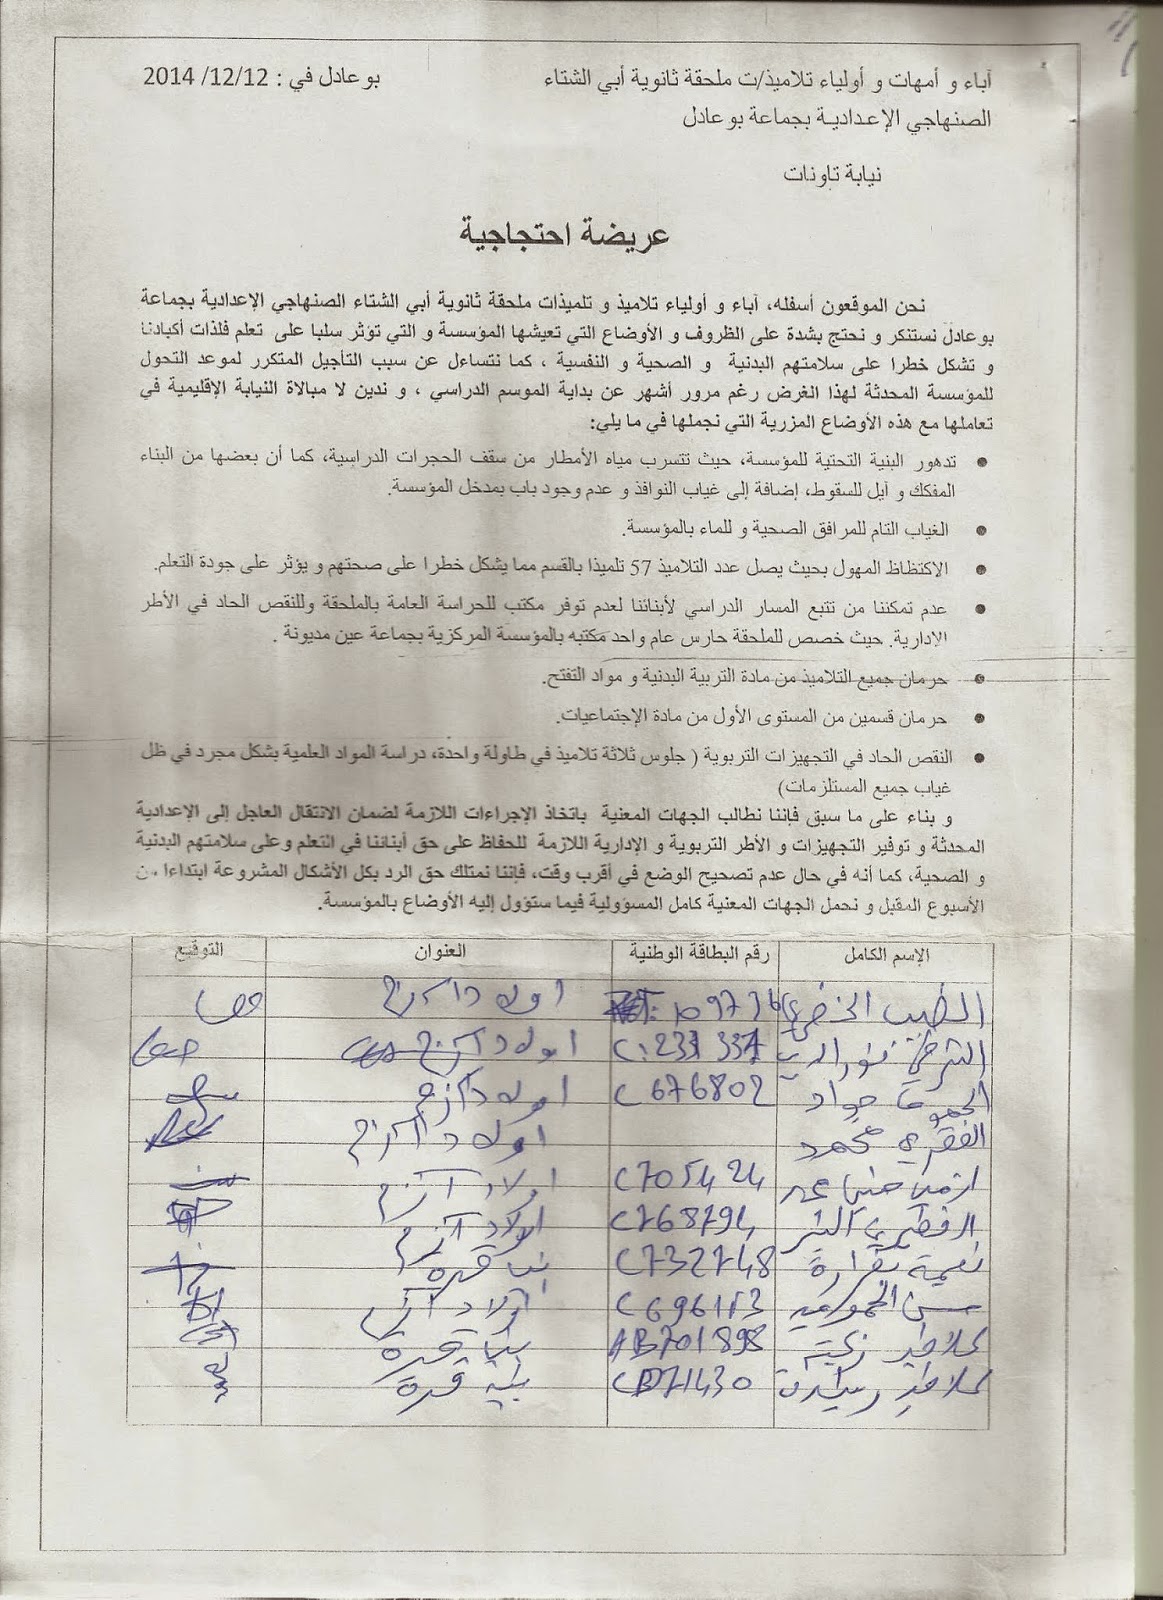 آباء و أمهات و أولياء تلاميذ/ت ملحقة ثانوية أبي الشتاء
بوعادل في : 12/12/ 2014
الصنهاجي الإعدادية بجماعة بوعادل
نيابة تاونات
عريضة احتجاجية
نحن الموقعون أسفله، آباء و أولياء تلاميذ و تلميذات ملحقة ثانوية أبي الشتاء الصنهاجي الإعدادية بجماعة
بوعادل نستنكر و نحتج بشدة على الظروف و الأوضاع التي تعيشها المؤسسة و التي تؤثر سلبا على تعلم فلذات أكبادنا
و تشكل خطرا على سلامتهم البدنية و الصحية و النفسية ، كما نتساءل عن سبب التأجيل المتكرر لموعد التحول
للمؤسسة المحدثة لهذا الغرض رغم مرور أشهر عن بداية الموسم الدراسي ، و ندين لا مبالاة النيابة الإقليمية في
تعاملها مع هذه الأوضاع المزرية التي نجملها في ما يلي:
• تدهور البنية التحتية للمؤسسة، حيث تتسرب مياه الأمطار من سقف الحجرات الدراسية، كما أن بعضها من البناء
المفكك و آيل للسقوط، إضافة إلى غياب النوافذ و عدم وجود باب بمدخل المؤسسة.
• الغياب التام للمرافق الصحية و للماء بالمؤسسة.
• الاكتظاظ المهول بحيث يصل عدد التلاميذ 57 تلميذا بالقسم مما يشكل خطرا على صحتهم و يؤثر على جودة التعلم.
• عدم تمكننا من تتبع المسار الدراسي لأبنائنا لعدم توفر مكتب للحراسة العامة بالملحقة وللنقص الحاد في الأطر
الإدارية. حيث خصص للملحقة حارس عام واحد مكتبه بالمؤسسة المركزية بجماعة عين مديونة .
• حرمان جميع التلاميذ من مادة التربية البدنية و مواد التفتح.
• حرمان قسمين من المستوى الأول من مادة الإجتماعيات.
• النقص الحاد في التجهيزات التربوية ( جلوس ثلاثة تلاميذ في طاولة واحدة، دراسة المواد العلمية بشكل مجرد في ظل
غياب جميع المستلزمات)
و بناء على ما سبق فإننا نطالب الجهات المعنية باتخاذ الإجراءات اللازمة لضمان الانتقال العاجل إلى الإعدادية
المحدثة و توفير التجهيزات و الأطر التربوية و الإدارية اللازمة للحفاظ على حق أبنائنا في التعلم وعلى سلامتهم البدنية
و الصحية، كما أنه في حال عدم تصحيح الوضع في أقرب وقت، فإننا نمتلك حق الرد بكل الأشكال المشروعة ابتداءا من
الأسبوع المقبل و نحمل الجهات المعنية كامل المسؤولية فيما ستؤول إليه الأوضاع بالمؤسسة.
الإسم الكامل رقم البطاقة الوطنية العنوان التوقيع
الطيب 109736 اولاد آزم
C231337 اولاد آزم
جواد C676802 اولاد آزم
محمد اولاد آزم
C705424 اولاد آزم
C768794 اولاد آزم
نعيمة C732748
C696113 اولاد آزم
AB701898